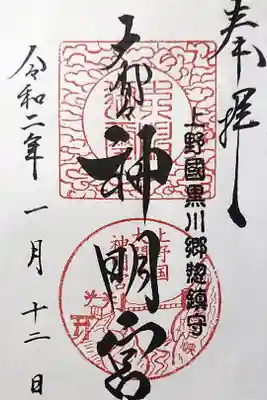 奉拝
上野國黒川郷惣鎮守
神明宮
令和二年一月十二日